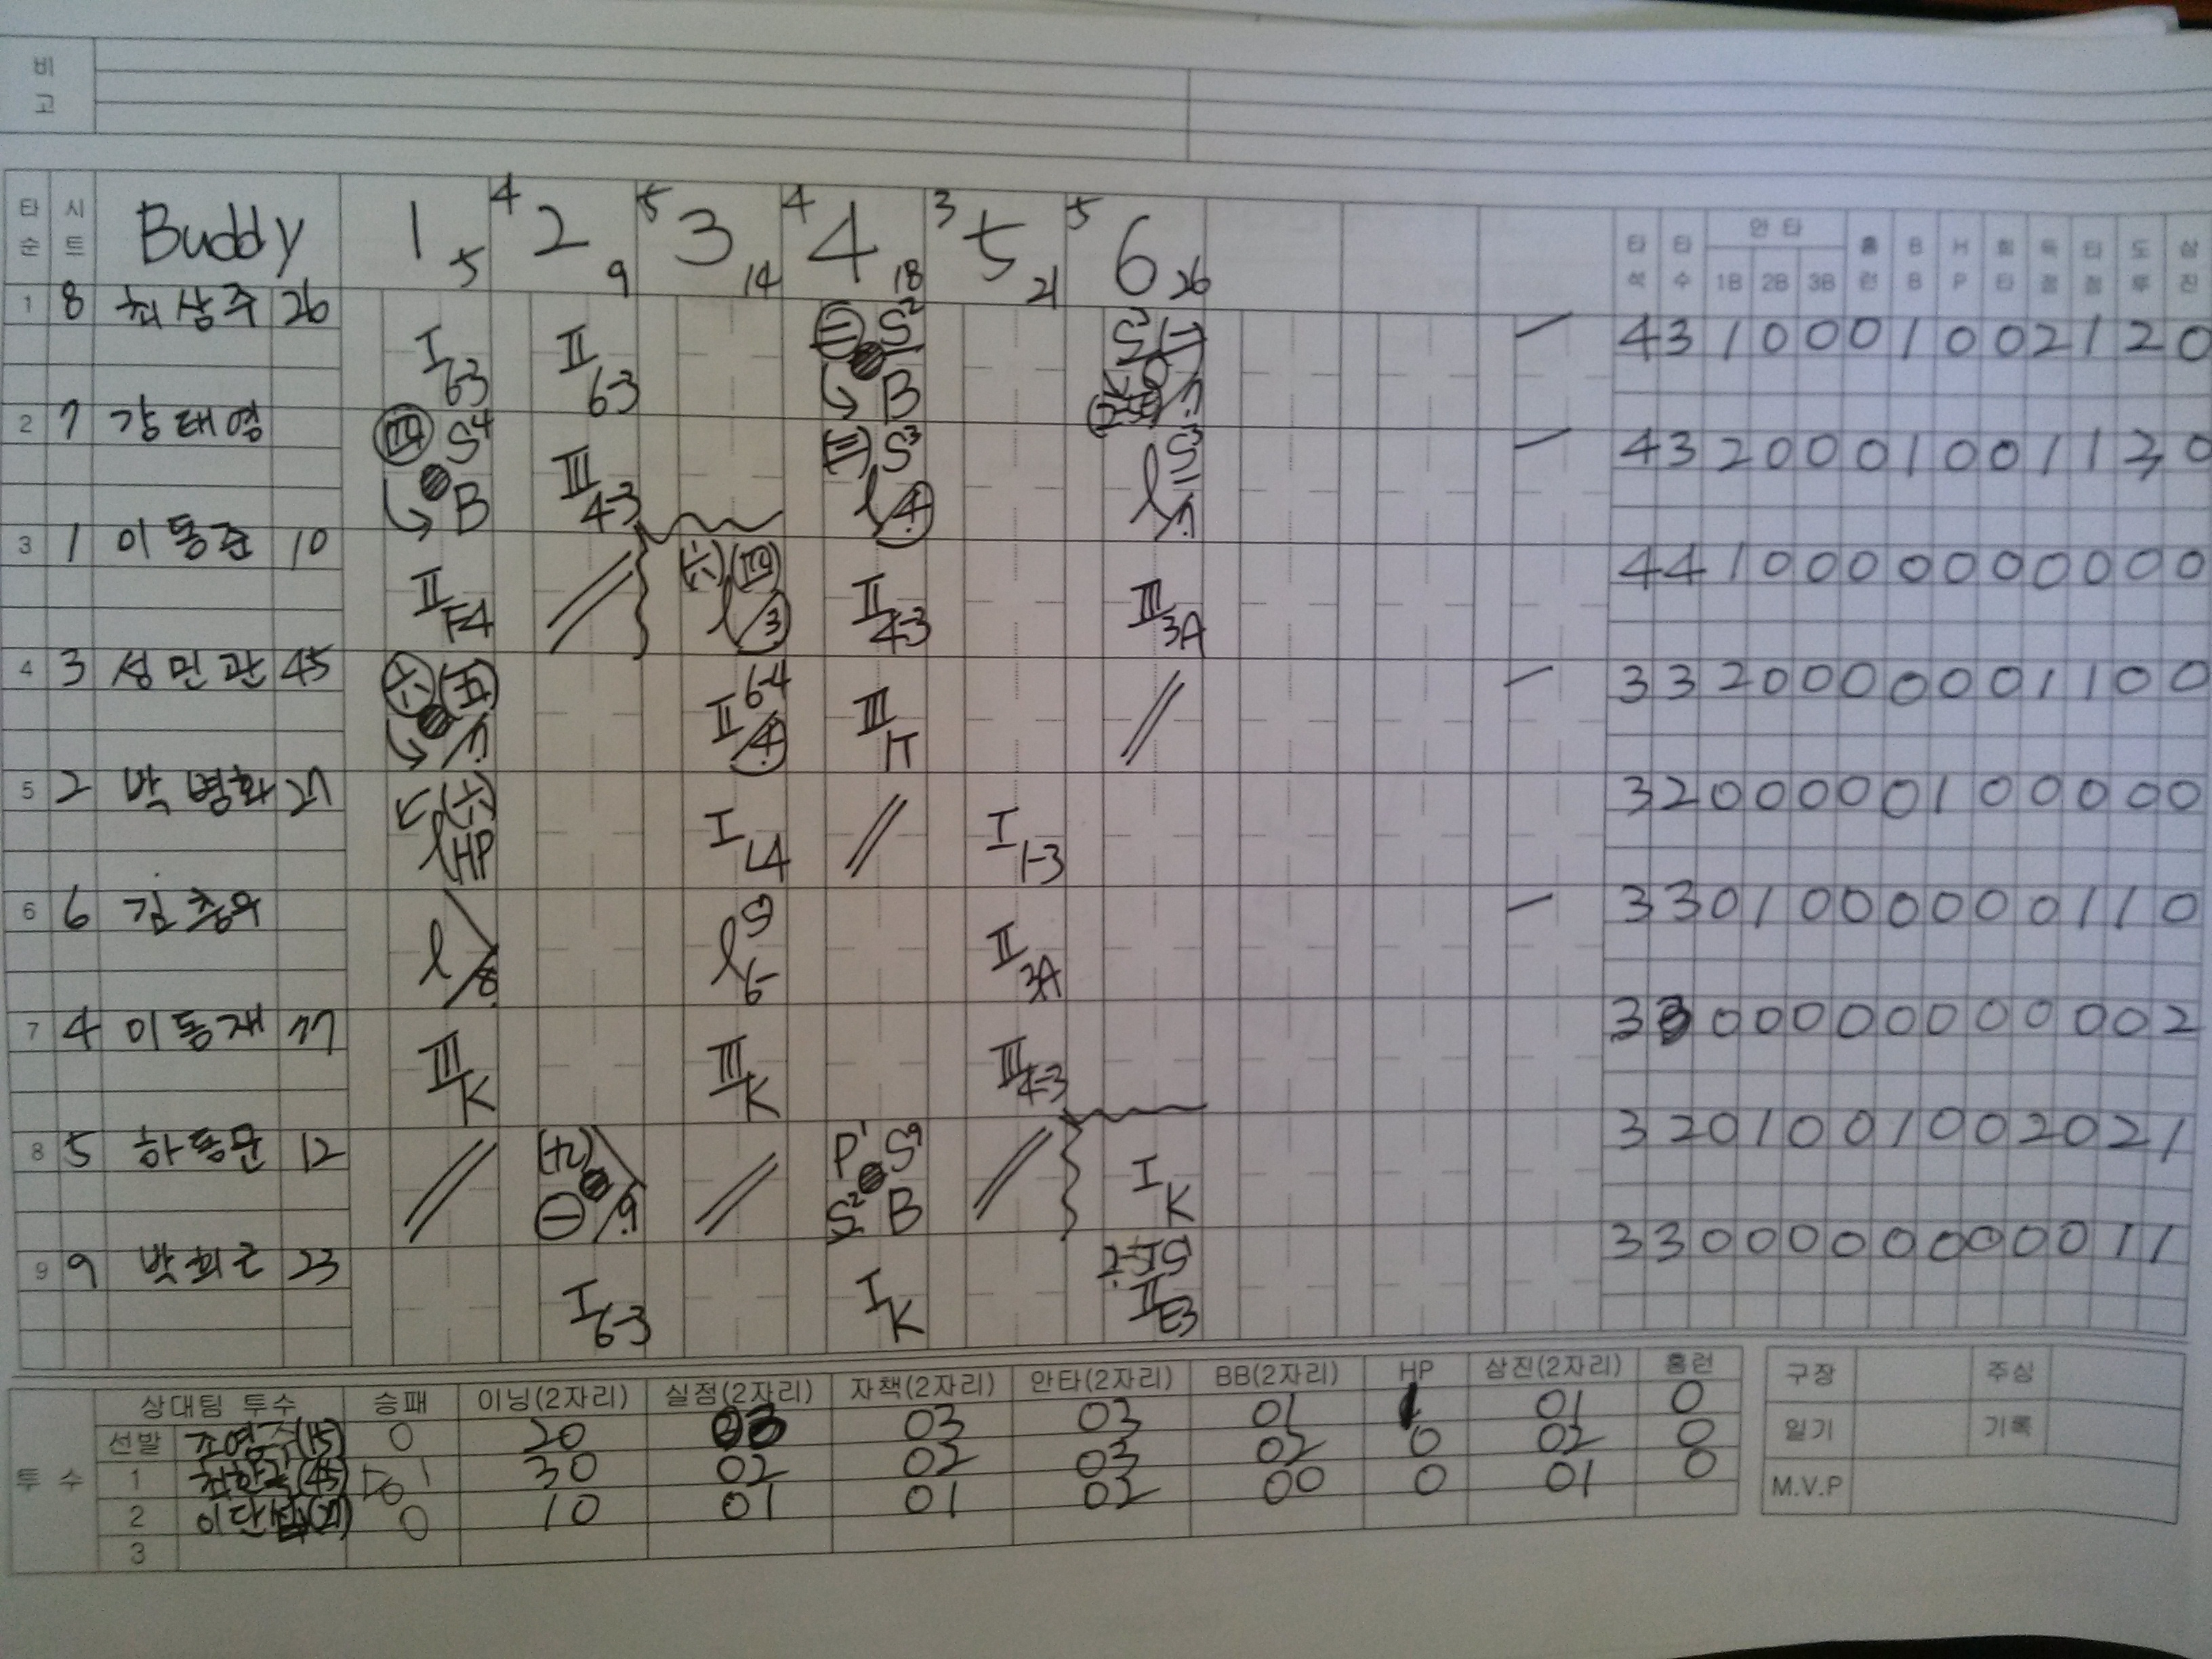 비
고
타 시 Buddy 1 5 4 2 9 5 3 14 4 4 18 3 5 21 5 6 26 타 타 안 타 홈 B H 희 득 타 도 삼
순 트 석 수 1B 2B 3B 런 B P 타 점 점 루 진
1 8 최상주 26 4 3 1 0 0 0 1 0 0 2 1 2 0
I 6-3 II 6-3 S2 B
2 7 강태영 4 3 2 0 0 0 1 0 0 1 1 3 0
S4 B III 4-3 S3 l 4
3 1 이동준 10 4 4 1 0 0 0 0 0 0 0 0 0 0
II F4 l 3 II 4-3 III 3A
4 3 성민관 45 3 3 2 0 0 0 0 0 0 1 1 0 0
II 6-4 4 III 1T
5 2 박병화 27 3 2 0 0 0 0 0 1 0 0 0 0 0
l HP I L4 I 1-3
6 6 김충우 3 3 0 1 0 0 0 0 0 0 1 1 0
l 8 l S 6- II 3A
7 4 이동재 77 3 3 0 0 0 0 0 0 0 0 0 0 2
III K III K III 4-3
8 5 하동문 12 3 2 0 1 0 0 1 0 0 2 0 2 1
9 P1 S9 S2 B I K
9 9 박희근 23 3 3 0 0 0 0 0 0 0 0 0 1 1
I 6-3 I K II E3
상대팀 투수 승패 이닝(2자리) 실점(2자리) 자책(2자리) 안타(2자리) BB(2자리) HP 삼진(2자리) 홈런
투 수
선발 (15) 0 20 03 03 03 01 1 01 0
1 (45) 30 02 02 03 02 0 02 0
2 0 10 01 01 02 00 0 01 0
3
구장 주심
일기 기록
M.V.P